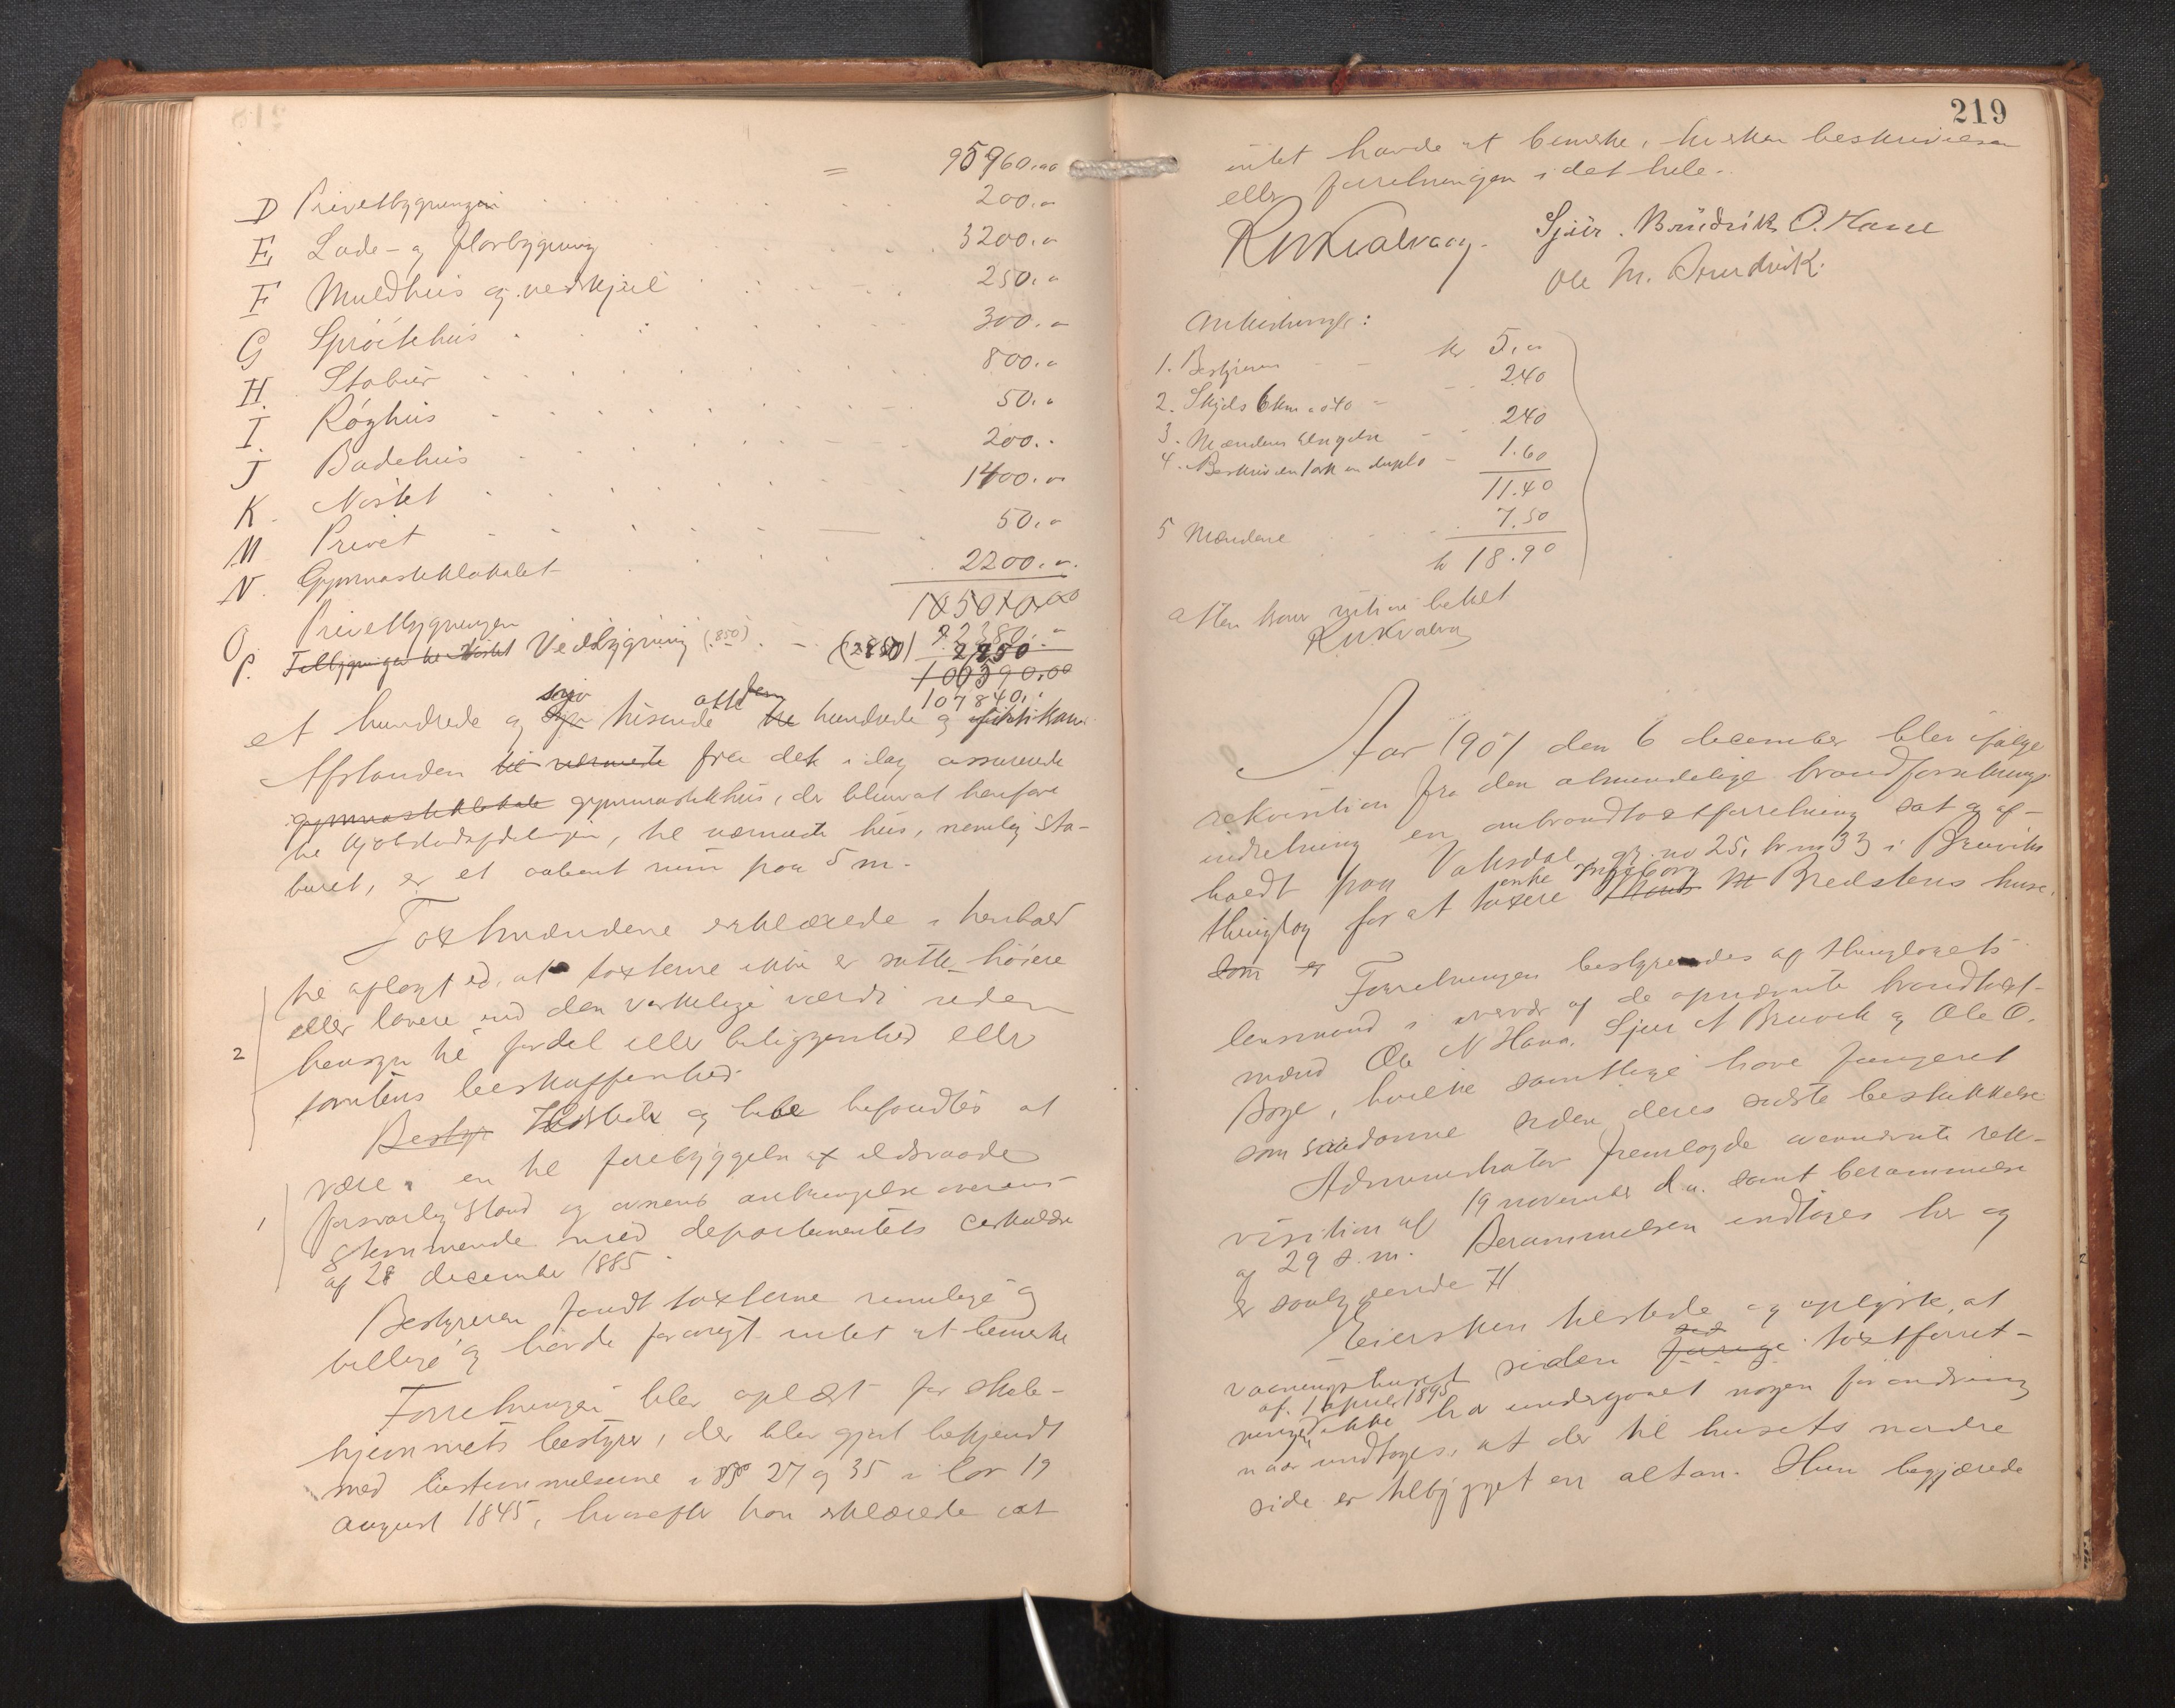 = 95960.00
D Privetbygningen 200.00
E Lade- og florbygning 3200.00
F Muldhus og vedskjul 250.00
G Sprøitehus 300.00
H. Stabur 800.00
I. Røghus 50.00
J Badehus 200.00
K. Nøstet 1400.00
M Privet 50.00
N. Gymnastiklokalet 2200.00
O. Privetbygningen
P. Tilbygningen til Nøstet Vedbygning (850)
100390.00
107840.00
et hundrede og syv tusende otte hundrede og
Afstanden til nærmeste fra det i dag assurerede
gymnastiklokale gymnastikhus, der blev at henføre
til kjøbstadsafdelingen, til nærmeste hus, nemlig sta-
buret, er et aabent rum paa 5 m.
Taxtmændene erklærede i henhold
til aflagt ed, at taxterne ikke er satte høiere
eller lavere end den virkelige værdi uden
2 hensyn til fordel eller beliggenhed eller
tomtens beskaffenhed.
Bestyr Ildsteder og piber befandtes at
være i en til forebyggelse af ildsvaade
1 forsvarlig stand og ovnens anbringelse overens-
stemmende med departementets cirkulære
af 28 december 1885.
Bestyreren fandt taxterne rimelige og
billige og havde forøvrigt intet at bemerke
Forretningen blev oplæst for skole-
hjemmets bestyrer, der blev gjort bekjendt
med bestemmelserne i §§ 27 og 35 i lov 19
august 1845, hvorefter han erklærede at
219
intet havde at bemerke, hverken beskrivelsen
eller forretningen i det hele.
Sjur Brudvik O. Hane
Ole M. Brudvik.
Anteckninger:
1. Bestyreren kr 5.00
2. Skyds 6 km a 040 2.40
3. Mændenes 2.40
4. Beskrivelsen 1 ark in duplo 1.60
11.40
5 Mændene 7.50
kr 18.90
Aar 1901 den 6 december blev ifølge
rekvisition fra den almindelige brandforsikrings-
indretning en ombrandtaxtforretning sat og af-
holdt paa Vaksdal, gr. no 25, br no 33 i Bruviks
thinglag for at taxere enke Ingeborg Bredstens huse.
som er Forretningen bestyredes af thinglagets
lensmand i overvær af de opnævnte brandtaxt-
mænd Ole N Hana, Sjur A Bruvik og Ole O.
Boge, hvilke samtlige have fungeret
som saadanne siden deres sidste beskikkelse
Administrator fremlagde ovennævnte rek-
visition af 19 november d. a. samt berammelse
af 29 s. m. Berammelsen indtages her og
er saalydende H
Eiersken tilstede og oplyste, at
vaaningshuset siden sid forrige taxtforret-
af. 1 april 1895
ningen ikke har undergaaet nogen forandring
naar undtages, at der til husets nordre
side er tilbygget en altan. Hun begjærede